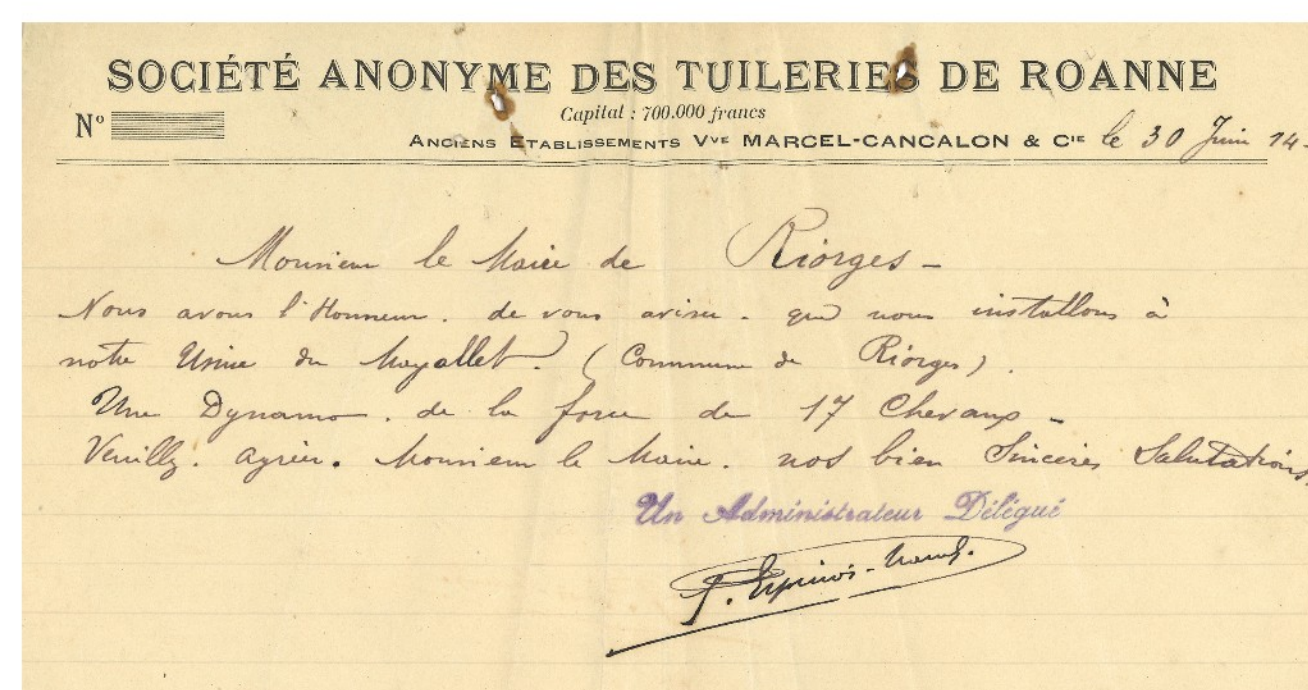 SOCIÉTÉ ANONYME DES TUILERIES DE ROANNE
Capital : 700.000 francs
Nº
ANCIENS ETABLISSEMENTS Vve MARCEL-CANCALON & Cie le 30 Juin 14-
Monsieur le Maire de Riorges -
Nous avons l'Honneur. de vous aviser. que nous installons à
notre Usine du Mayollet. (Commune de Riorges).
Une Dynamo. de la force de 17 Chevaux -
Veuillez. agréer. Monsieur le Maire. nos bien Sincères Salutations.
Un Administrateur Délégué